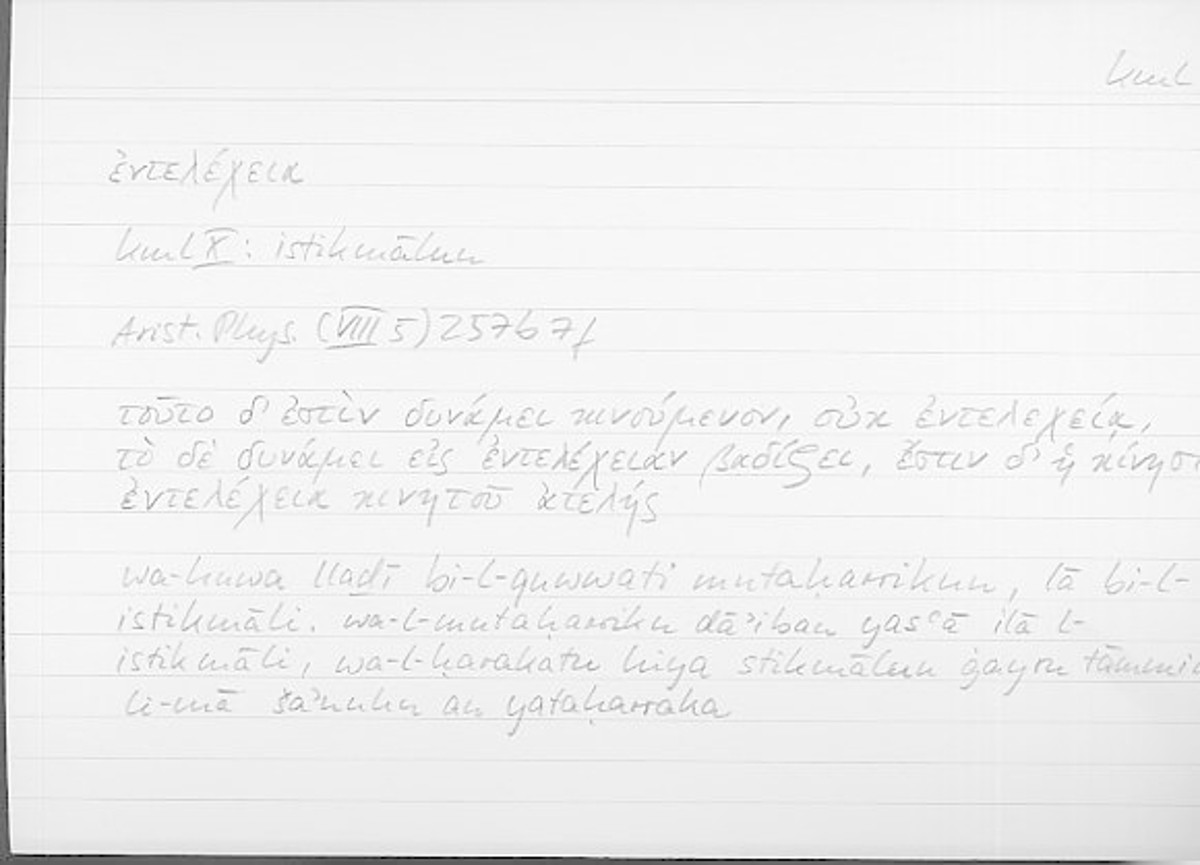 kml
ἐντελέχεια
kml X: istikmālun
Arist. Phys. (VIII 5) 257b 7f
τοῦτο δ' ἐστὶν δυνάμει κινούμενον, οὐκ ἐντελεχείᾳ,
τὸ δὲ δυνάμει εἰς ἐντελέχειαν βαδίζει, ἔστιν δ' ἡ κίνησι
ἐντελέχεια κινητοῦ ἀτελής
wa-huwa lladī bi-l-quwwati mutaḥarrikun, lā bi-l-
istikmāli. wa-l-mutaḥarriku dāʾiban yasʿā ilā l-
istikmāli, wa-l-ḥarakatu hiya stikmālun ġayru tāmmin
li-mā šaʾnuhu an yataḥarraka